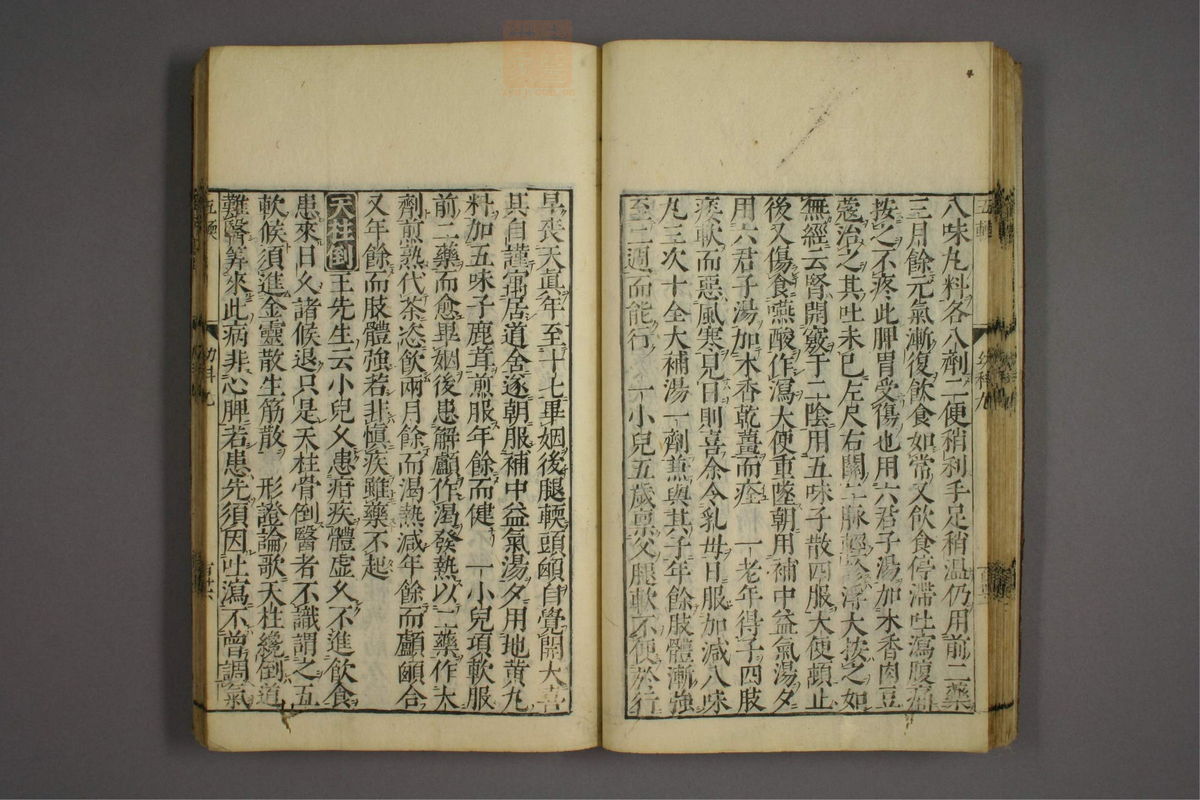 八味丸料各八劑二便稍利手足稍溫仍用前二藥
三月餘元氣漸復飲食如常又飲食停滯吐瀉腹痛
按之不疼此脾胃受傷也用六君子湯加木香肉豆
蔻治之其吐未已左尺右關二脉輕診浮大按之如
無經云腎開竅于二陰用五味子散四服大便頓止
後又傷食嚥酸作瀉大便重墜朝用補中益氣湯夕
用六君子湯加木香乾薑而痊 一老年得子四肢
痿軟而惡風寒見日則喜余令乳母日服加减八味
丸三次十全大補湯一劑兼與其子年餘肢體漸強
至二週而能行 一小兒五歲禀父腿軟不便於行
早喪天真年至十七畢姻後腿輭頭顱自覺開大喜
其自謹寓居道舍遂朝服補中益氣湯夕用地黄丸
料加五味子鹿茸煎服年餘而健 一小兒項軟服
前二藥而愈畢姻後患解顱作渴發熱以二藥作大
劑煎熟代茶恣飲兩月餘而渴熱減年餘而顱顖合
又年餘而肢體強若非慎疾雖藥不起
天柱倒 王先生云小兒久患疳疾體虛久不進飲食
患來日久諸候退只是天柱骨倒醫者不識謂之五
軟候須進金靈散生筋散 形證論歌天柱纔倒道
難醫筭來此病非心脾若患先須因吐瀉不曽調氣
五輭
幼科九